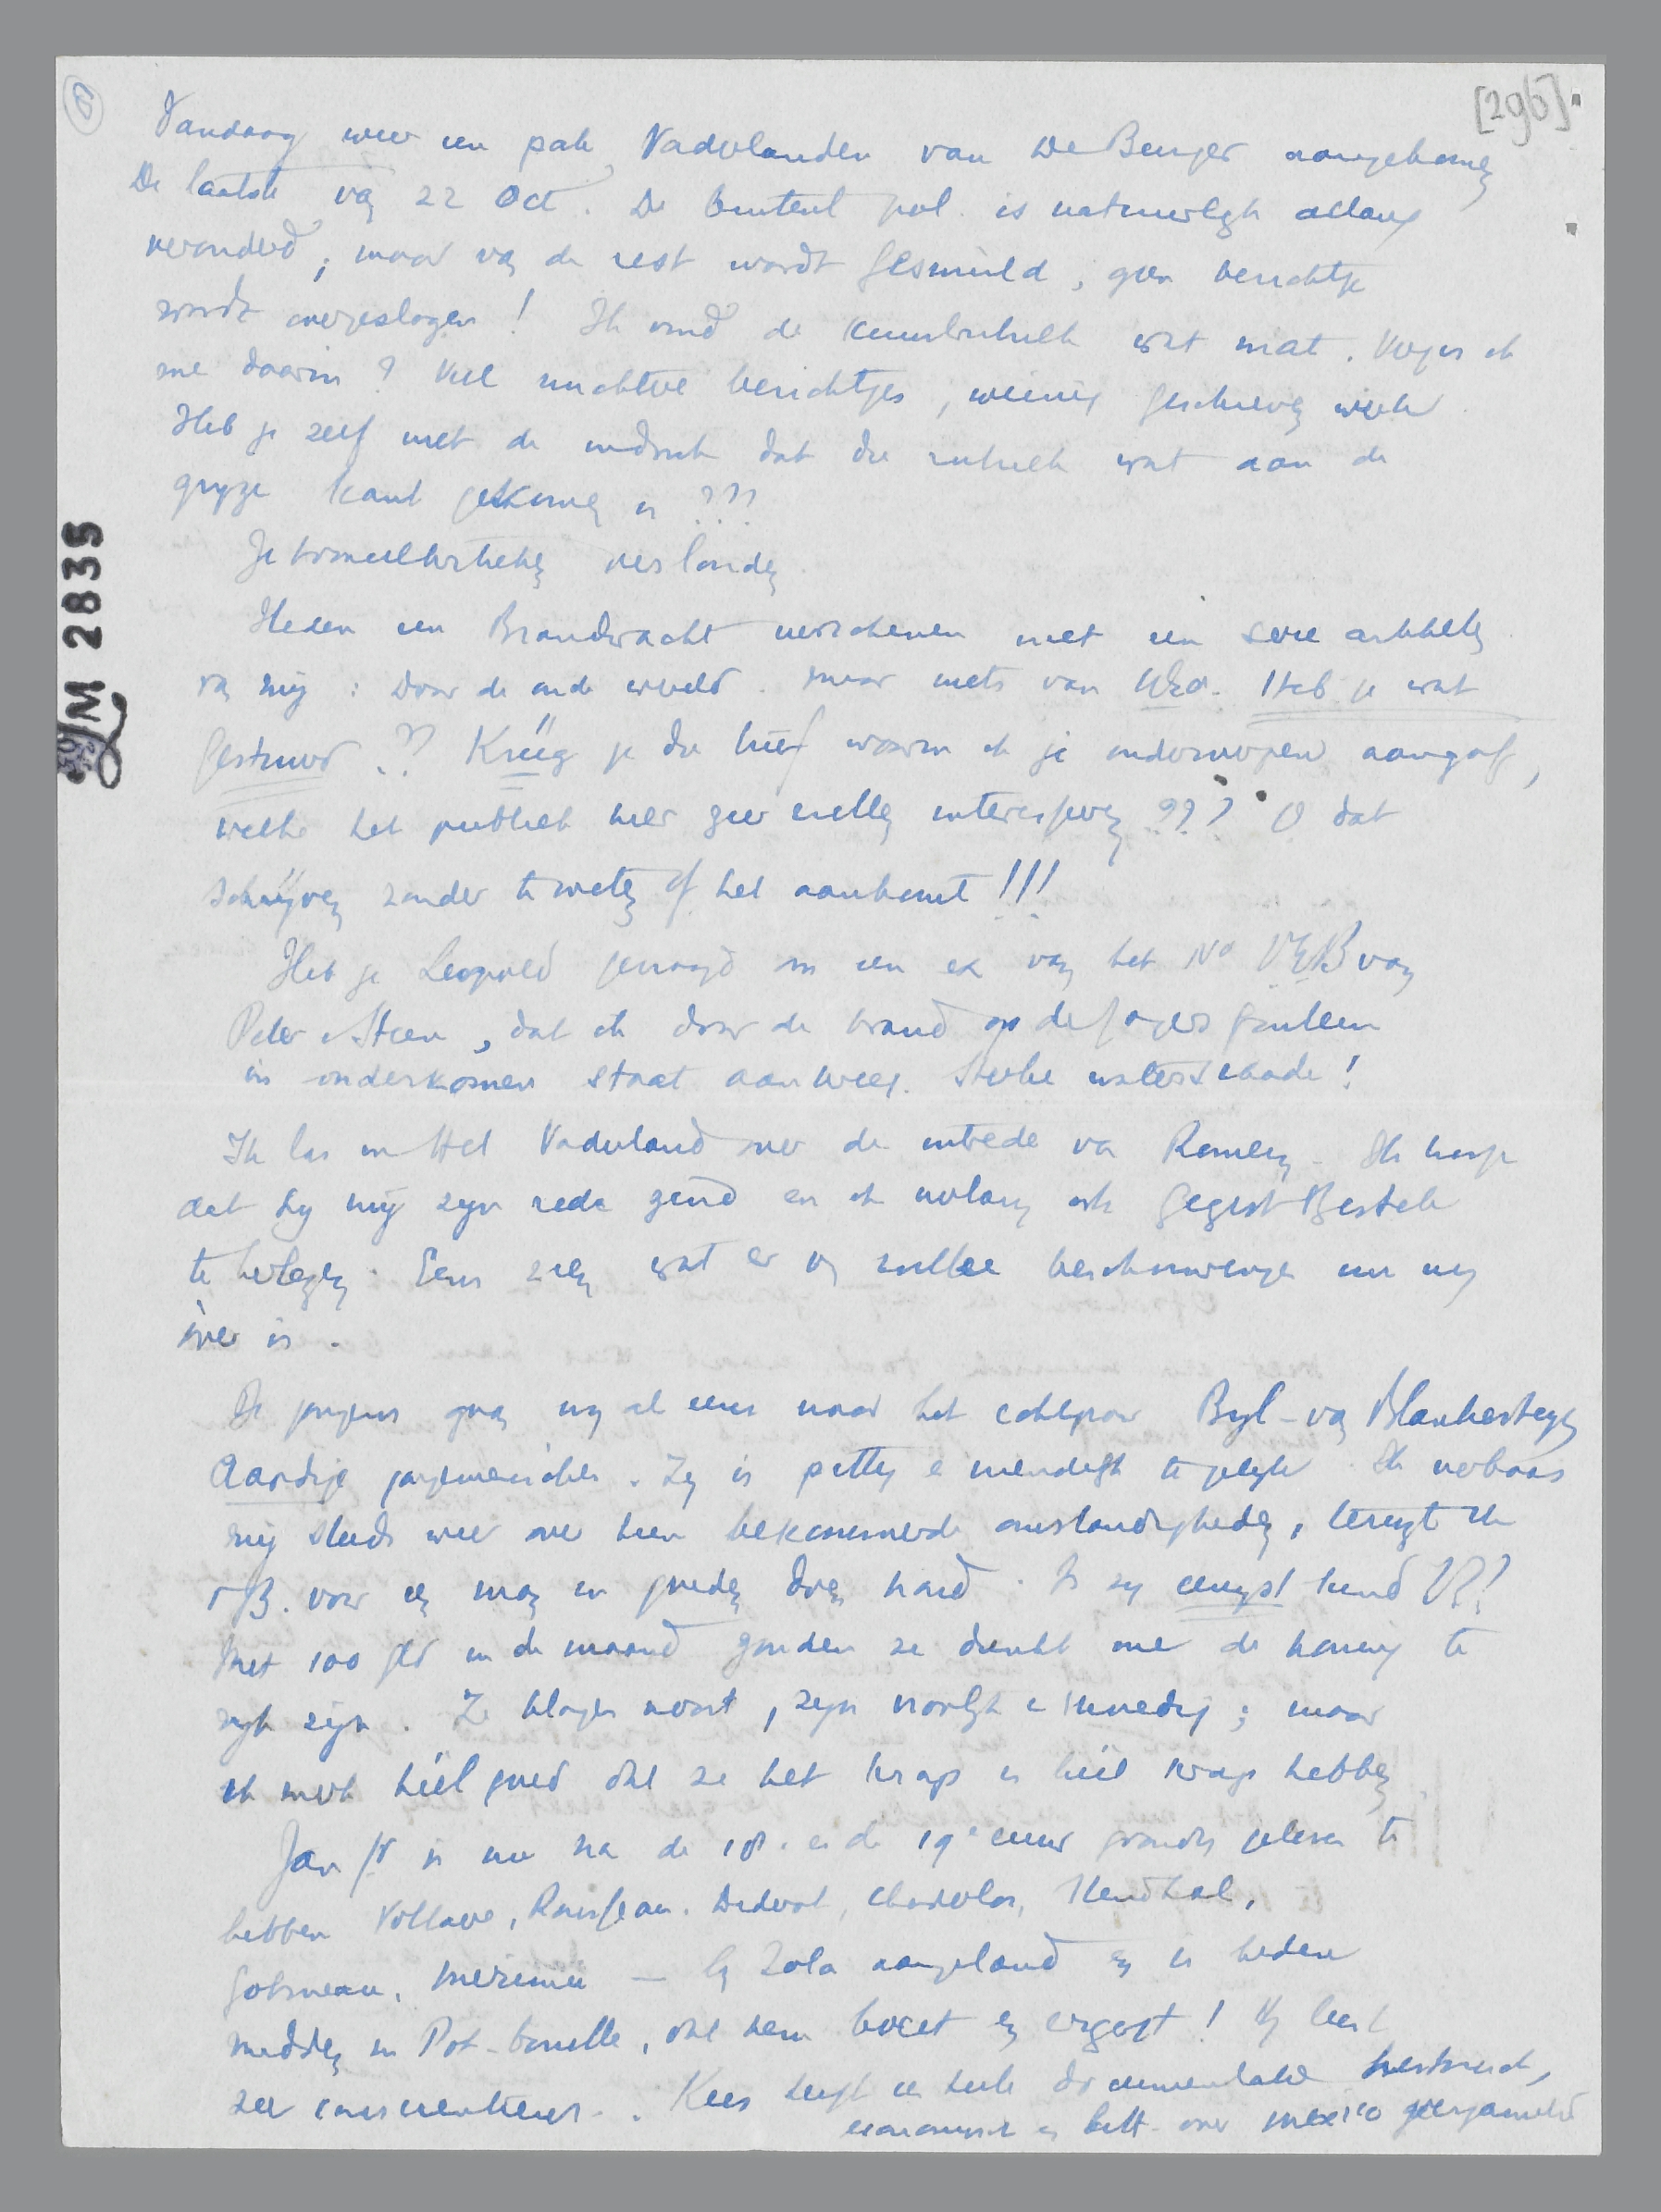 [296]
Vandaag weer een pak Vaderlanden van De Burger aangekomen
De laatste van 22 Oct. De buitenl pol. is natuurlijk allang
veranderd; maar van de rest wordt gesmuld, geen berichtje
wordt overgeslagen! Ik vind de kunstrubriek wat mat. Vergis ik
me daarin? Veel nuchtere berichtjes, weinig geschreven werk
Heb je zelf niet de indruk dat die rubriek wat aan de
gryze kant gekomen is???
Je tooneelkritieken verslonden.
Heden een Brandwacht verschenen met een serie artikkelen
van mij: Door de oude wereld. maar niets van Heb je wat
gestuurd?? Krijg je die brief waarin ik je onderwerpen aangaf,
welke het publiek hier zeer zullen interesseren??? O dat
schrijven zonder te weten of het aankomt!!!
Heb je Leopold gevraagd om een ex van het No van
Peter v Steen, dat ik door de brand op de Jagersfontein
in onderkomen staat aankreeg. Sterke waterschade!
Ik las in Het Vaderland over de intrede van Romein. Ik hoop
dat hy mij zyn rede zend en ik verlang ook Gegist Bestek
te herlezen. Eens zien wat er van zulke beschouwingen nu nog
over is.
De jongens gaan nog al eens naar het echtpaar Byl-van Blankesteyn
Aardige jongemenschen. Zy is pittig & vriendelijk te gelyk. Ik verbaas
mij steeds weer over hun bekommerde omstandigheden, terwijl de
v B. voor een man in goeden doen houd. Is zy eenigst kind??!
Met 100 gld in de maand zouden ze dunkt me de koning te
rijk zijn. Ze klagen nooit, zyn vroolijk & tevreden; maar
ik merk héél goed dat ze het krap en héél krap hebben
Jan Gr is nu na de 18e en de 19e eeuw grondig gelezen te
hebben Voltaire, Rousseau, Diderot, Stendhal,
Gobineau, Merimée — by Zola aangeland en is heden
midden in Pot-bouille, dat hem boeit en ergert! Hy leest
zeer consciencieus. Kees heeft een heele documentatie historisch,
economisch en lett. over Mexico verzameld
M 2835